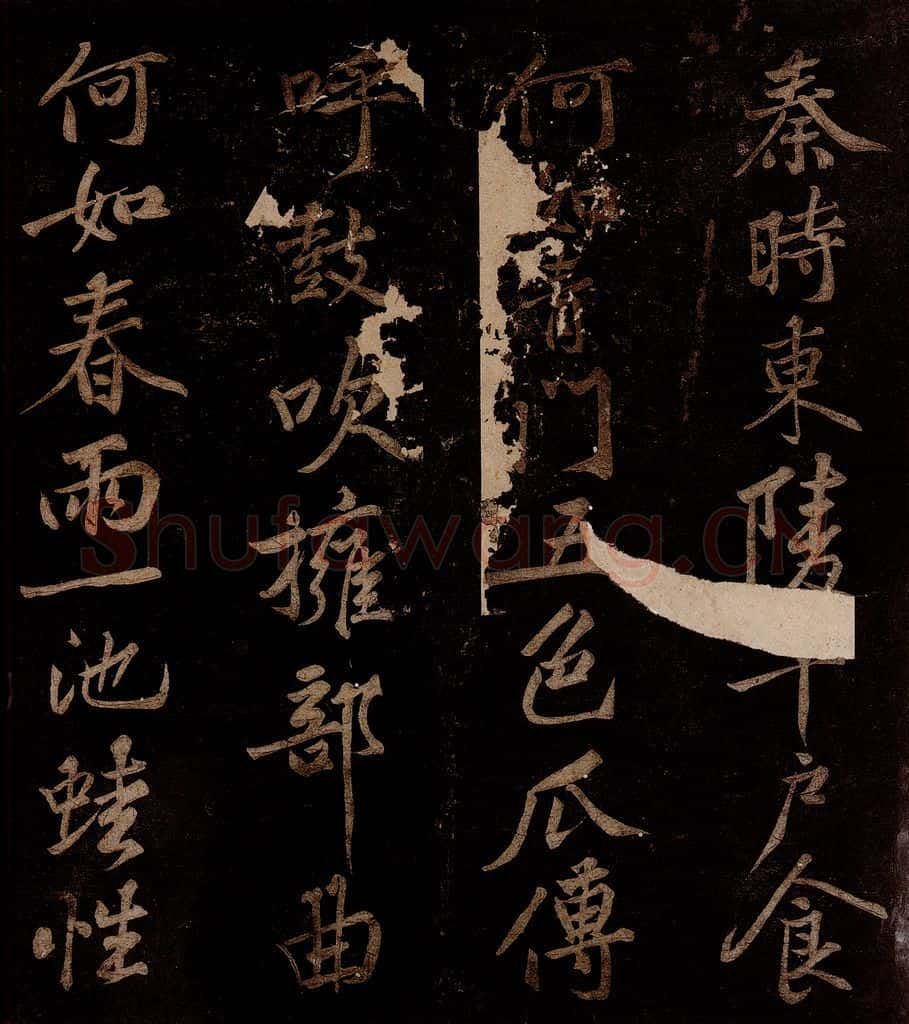 秦時東陵千户食
何如青門五色瓜傳
呼鼓吹擁部曲
何如春雨一池蛙性
Shufawang.CN